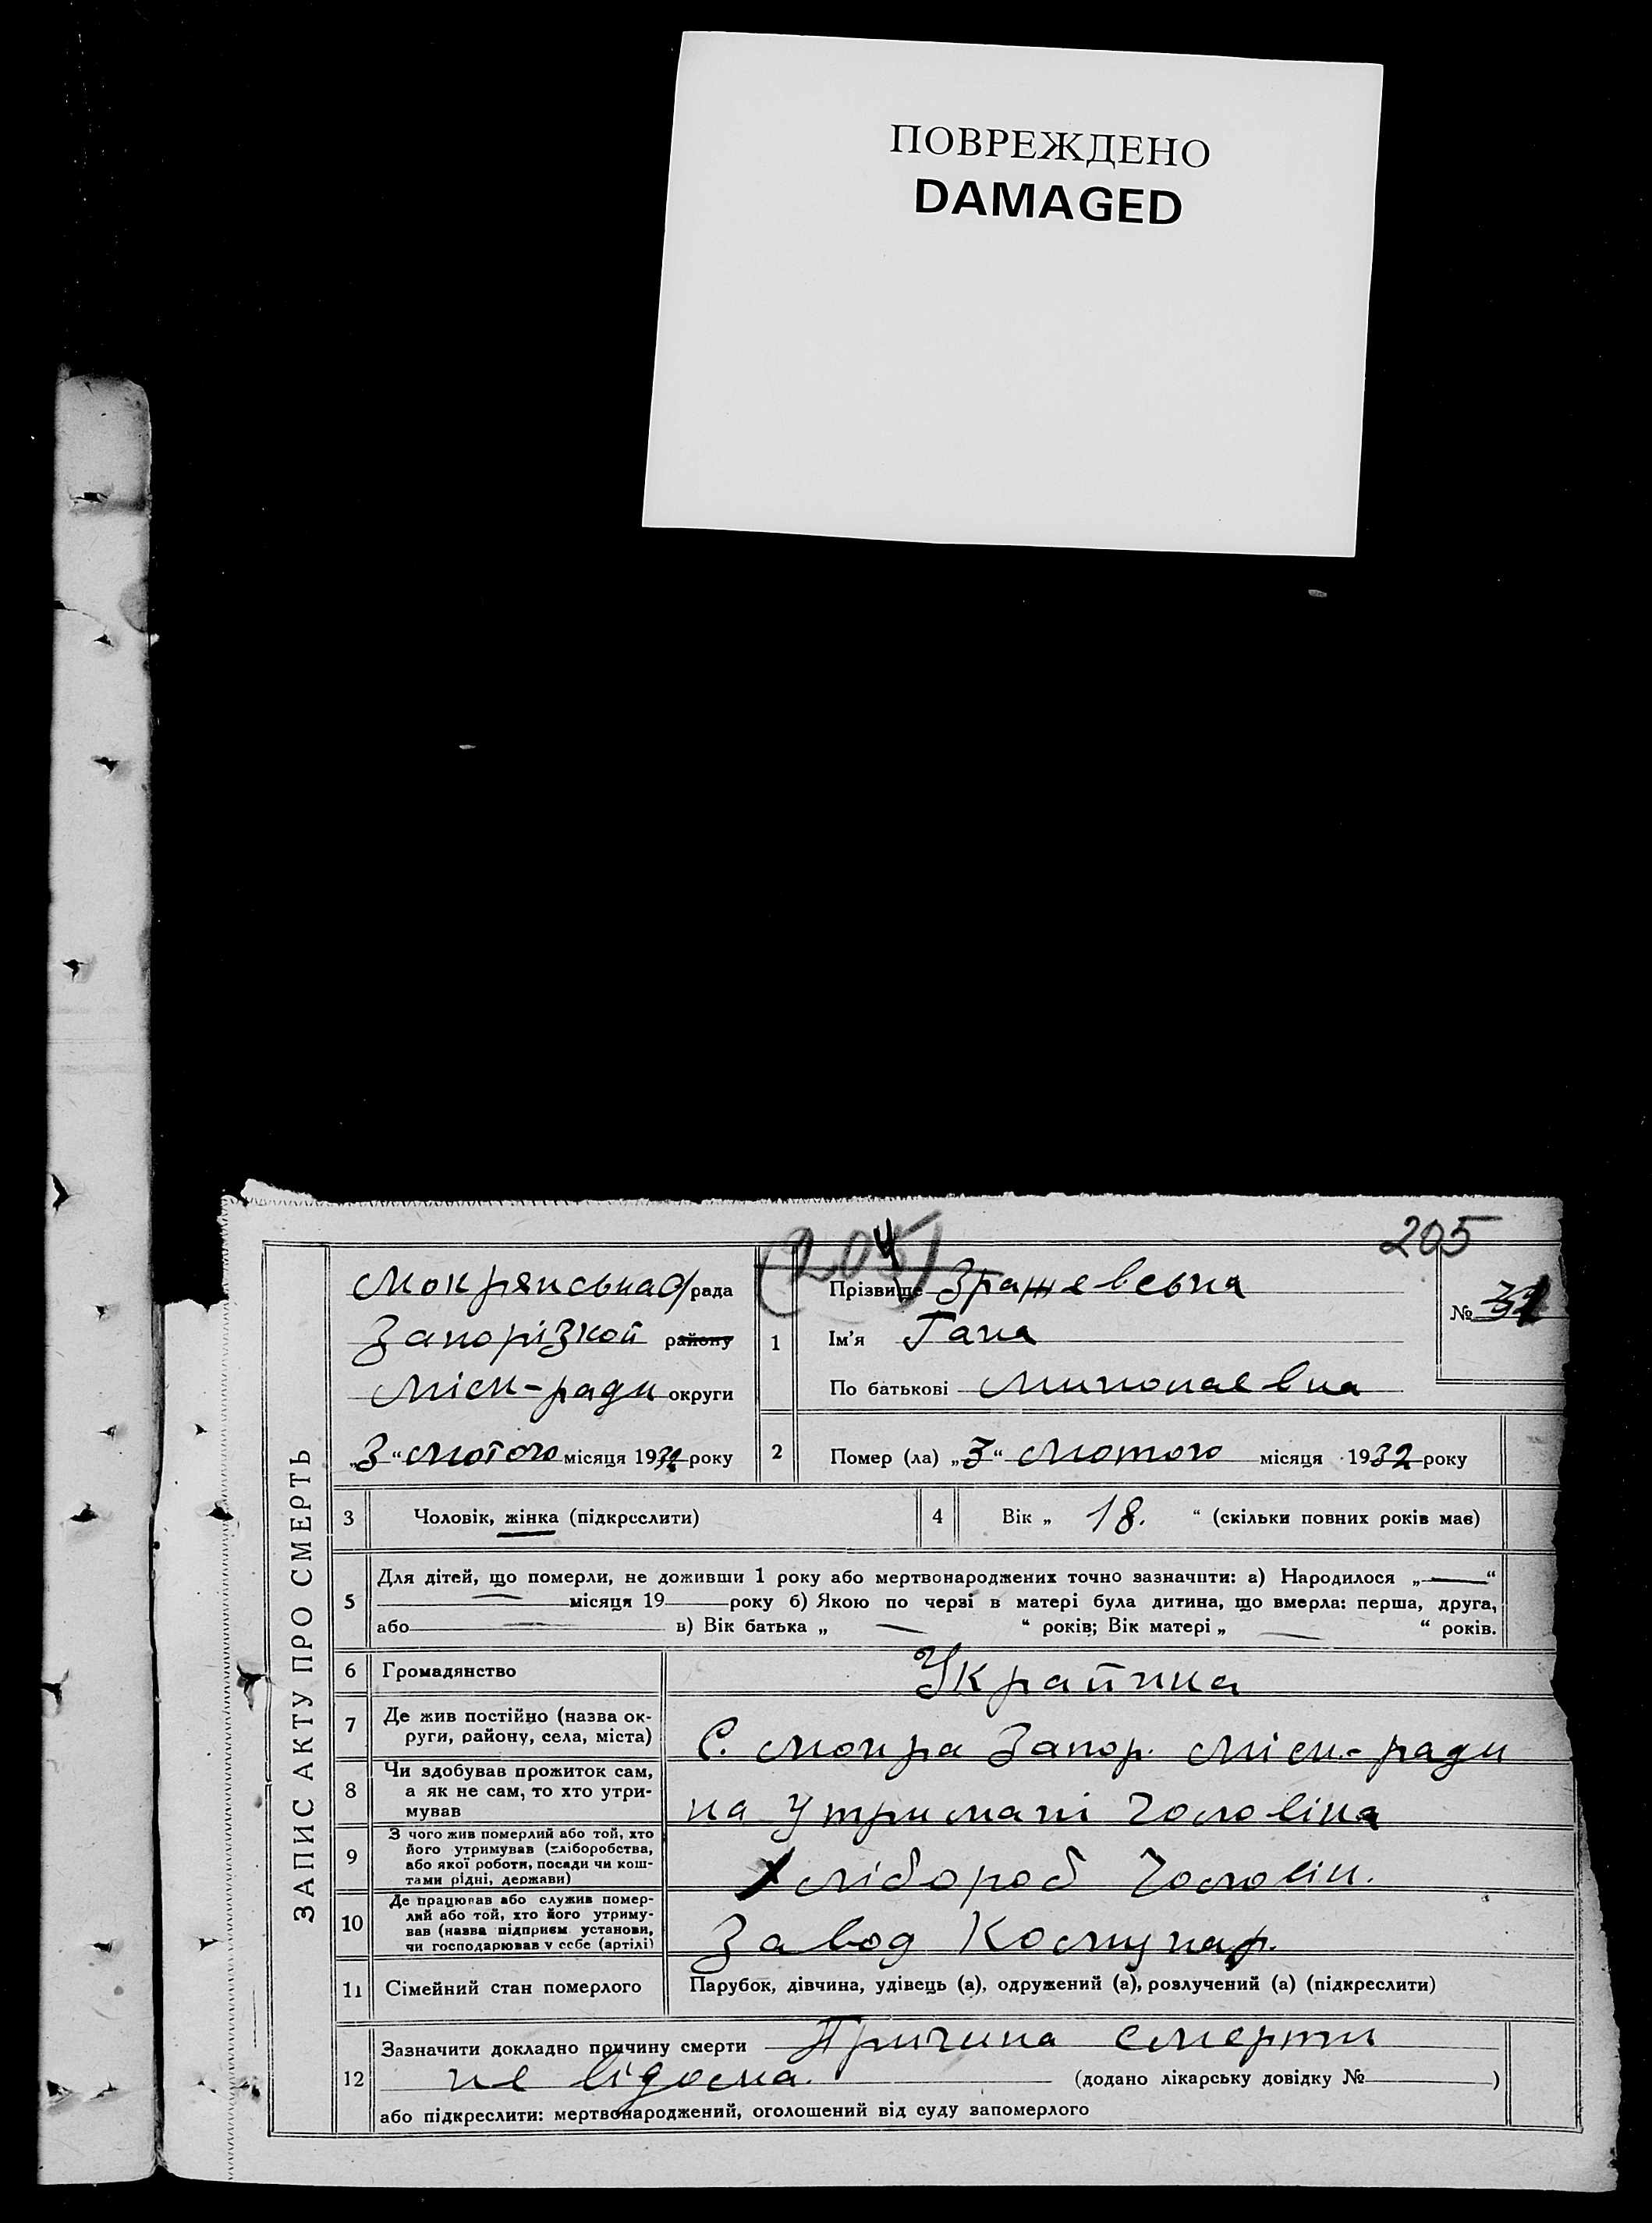 ПОВРЕЖДЕНО
DAMAGED
205
ЗАПИС АКТУ ПРО СМЕРТЬ
Мокрянська с/рада
Запорізкой району
міськ-ради округи
„3“ лютого місяця 1932 року
1
Прізвище Зражевська
Ім’я Гана
По батькові Миколаевна
№
2
Помер (ла) „3“ лютого місяця 1932 року
3 Чоловік, жінка (підкреслити)
4 Вік „ 18. “ (скільки повних років має)
5 Для дітей, що померли, не доживши 1 року або мертвонароджених точно зазначити: а) Народилося „—“
— місяця 19— року б) Якою по черзі в матері була дитина, що вмерла: перша, друга,
або — в) Вік батька „ — “ років; Вік матері „ — “ років.
6 Громадянство Украйнка
7 Де жив постійно (назва округи, району, села, міста) С. Мокра Запор. міськ.-ради
8 Чи здобував прожиток сам, а як не сам, то хто утримував на утримані чоловіка
9 З чого жив померлий або той, хто його утримував (хліборобства, або якої роботи, посади чи коштами рідні, держави) Хлібороб чоловік.
10 Де працював або служив померлий або той, хто його утримував (назва підприєм. установи, чи господарював у себе (артілі) Завод Комунар.
11 Сімейний стан померлого Парубок, дівчина, удівець (а), одружений (а), розлучений (а) (підкреслити)
12 Зазначити докладно причину смерти Причина смерти
не відома. (додано лікарську довідку № )
або підкреслити: мертвонароджений, оголошений від суду запомерлого